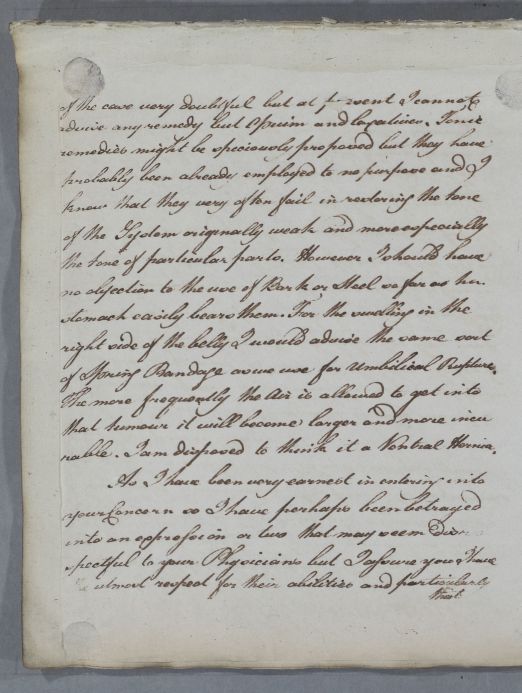 of the case very doubtful but at present I cannot
advise any remedy but Opium and Laxatives. Tonic
remedies might be speciously proposed but they have
probably been already employed to no purpose and I
know that they very often fail in restoring the tone
of the System originally weak and more especially
the tone of particular parts. However I should have
no objection to the use of Bark or Steel so far as her
stomach easily bears them. For the swelling in the
right side of the belly I would advise the same sort
of Spring Bandage as we use for Umbilical Rupture.
The more frequently the Air is allowed to get into
that tumour it will become larger and more incu
rable. I am disposed to think it a Ventral Hernia.
As I have been very earnest in entering into
your Concern so I have perhaps been betrayed
into an expression or two that may seem Disre
spectful to your Physicians but I assure you I have
utmost respect for their abilities and particularly
their